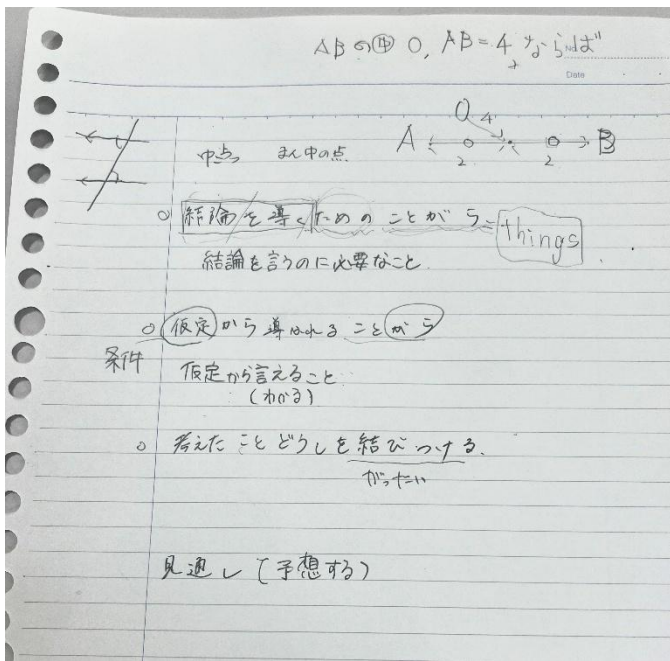 ABの㊥ O, AB=4ならば
Date
A O 4 B
2 2
中点 まん中の点
○ 結論を導くためのことがら=things
結論を言うのに必要なこと
○ 仮定から導かれることがら
条件
仮定から言えること
(わかる)
○ 考えたことどうしを結びつける.
がったい
見通し(予想する)